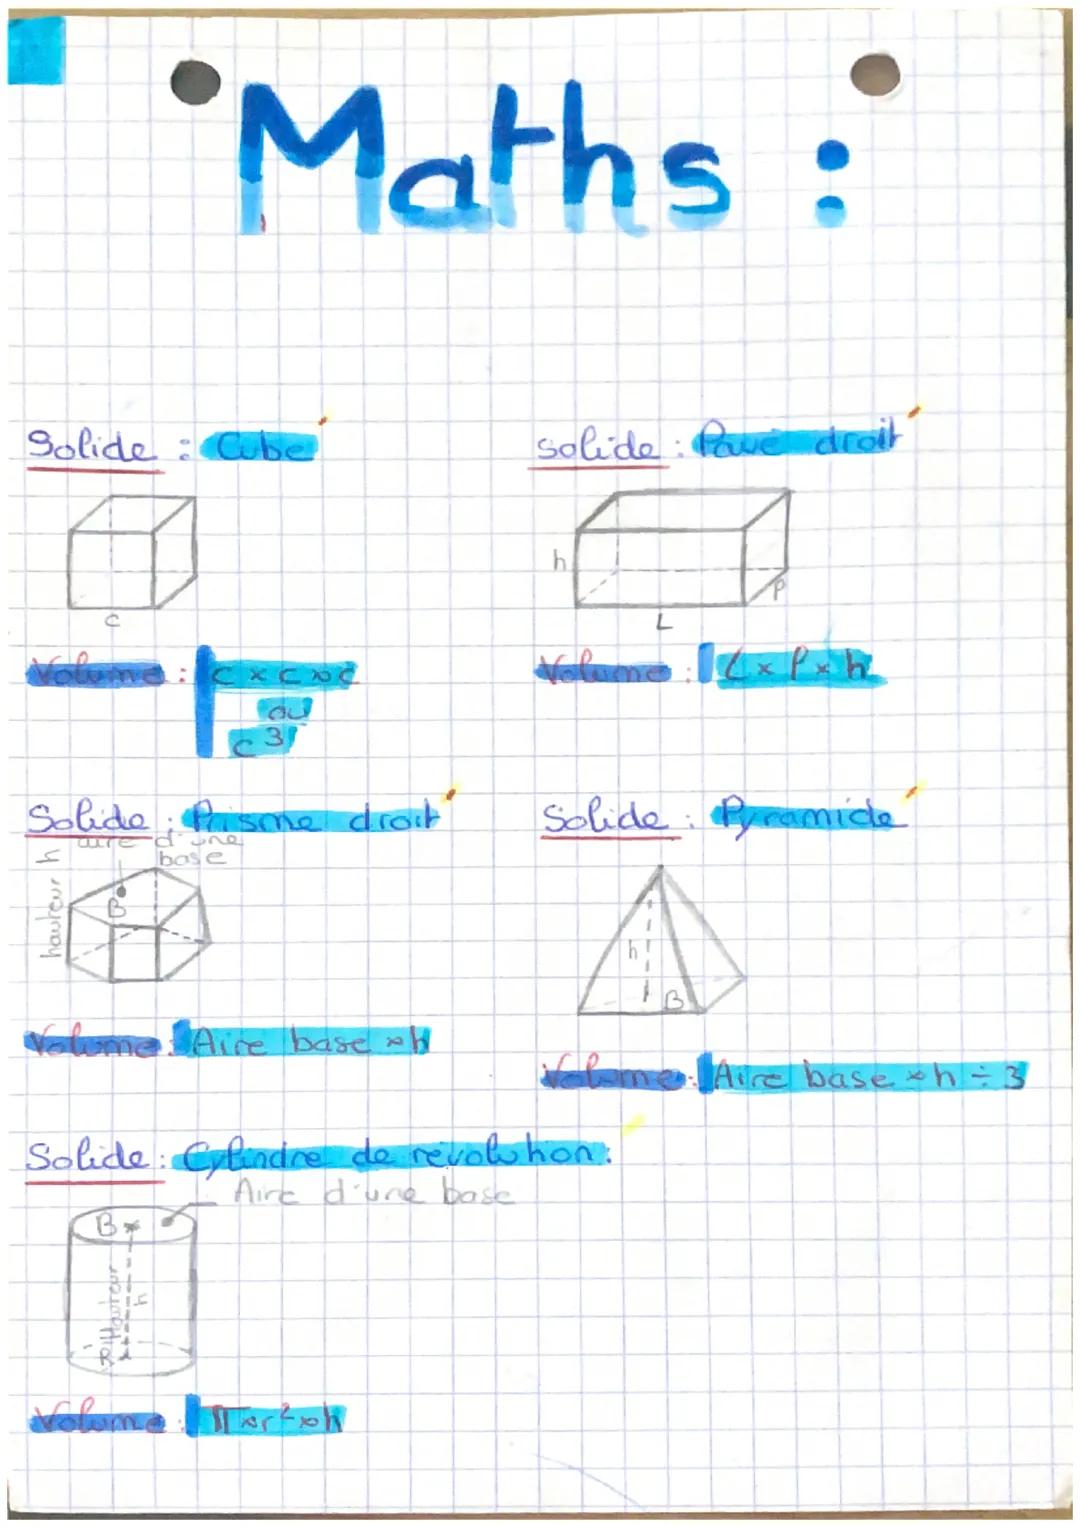 Maths :
Solide : Cube
c
Volume : c x c x c
ou
c³
solide : Pavé droit
h
P
L
Volume : L x P x h
Solide : Prisme droit
aire d'une
base
hauteur h
B
Volume : Aire base x h
Solide : Pyramide
h
B
Volume : Aire base x h ÷ 3
Solide : Cylindre de révolution :
Aire d'une base
B
Hauteur
h
R
Volume : π x r² x h